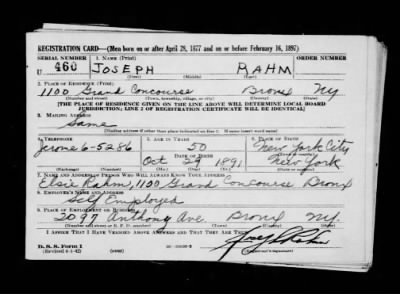 REGISTRATION CARD—(Men born on or after April 28, 1877 and on or before February 16, 1897)
SERIAL NUMBER 1. NAME (Print) ORDER NUMBER
U 460 JOSEPH RAHM
(First) (Middle) (Last)
2. PLACE OF RESIDENCE (Print)
1100 Grand Concourse Bronx NY
(Number and street) (Town, township, village, or city) (County) (State)
[THE PLACE OF RESIDENCE GIVEN ON THE LINE ABOVE WILL DETERMINE LOCAL BOARD
JURISDICTION; LINE 2 OF REGISTRATION CERTIFICATE WILL BE IDENTICAL]
3. MAILING ADDRESS
Same
[Mailing address if other than place indicated on line 2. If same insert word same]
4. TELEPHONE 5. AGE IN YEARS 6. PLACE OF BIRTH
Jerome 6-5286 50 New York City
DATE OF BIRTH
Oct 29 1891 New York
(Exchange) (Number) (Mo.) (Day) (Yr.) (State or country)
7. NAME AND ADDRESS OF PERSON WHO WILL ALWAYS KNOW YOUR ADDRESS
Elsie Rahm, 1100 Grand Concourse Bronx
8. EMPLOYER'S NAME AND ADDRESS
Self Employed
9. PLACE OF EMPLOYMENT OR BUSINESS
2097 Anthony Ave Bronx NY.
(Number and street or R. F. D. number) (Town) (County) (State)
I AFFIRM THAT I HAVE VERIFIED ABOVE ANSWERS AND THAT THEY ARE TRUE.
D. S. S. Form 1
(Revised 4-1-42) (over)
Joseph Rahm